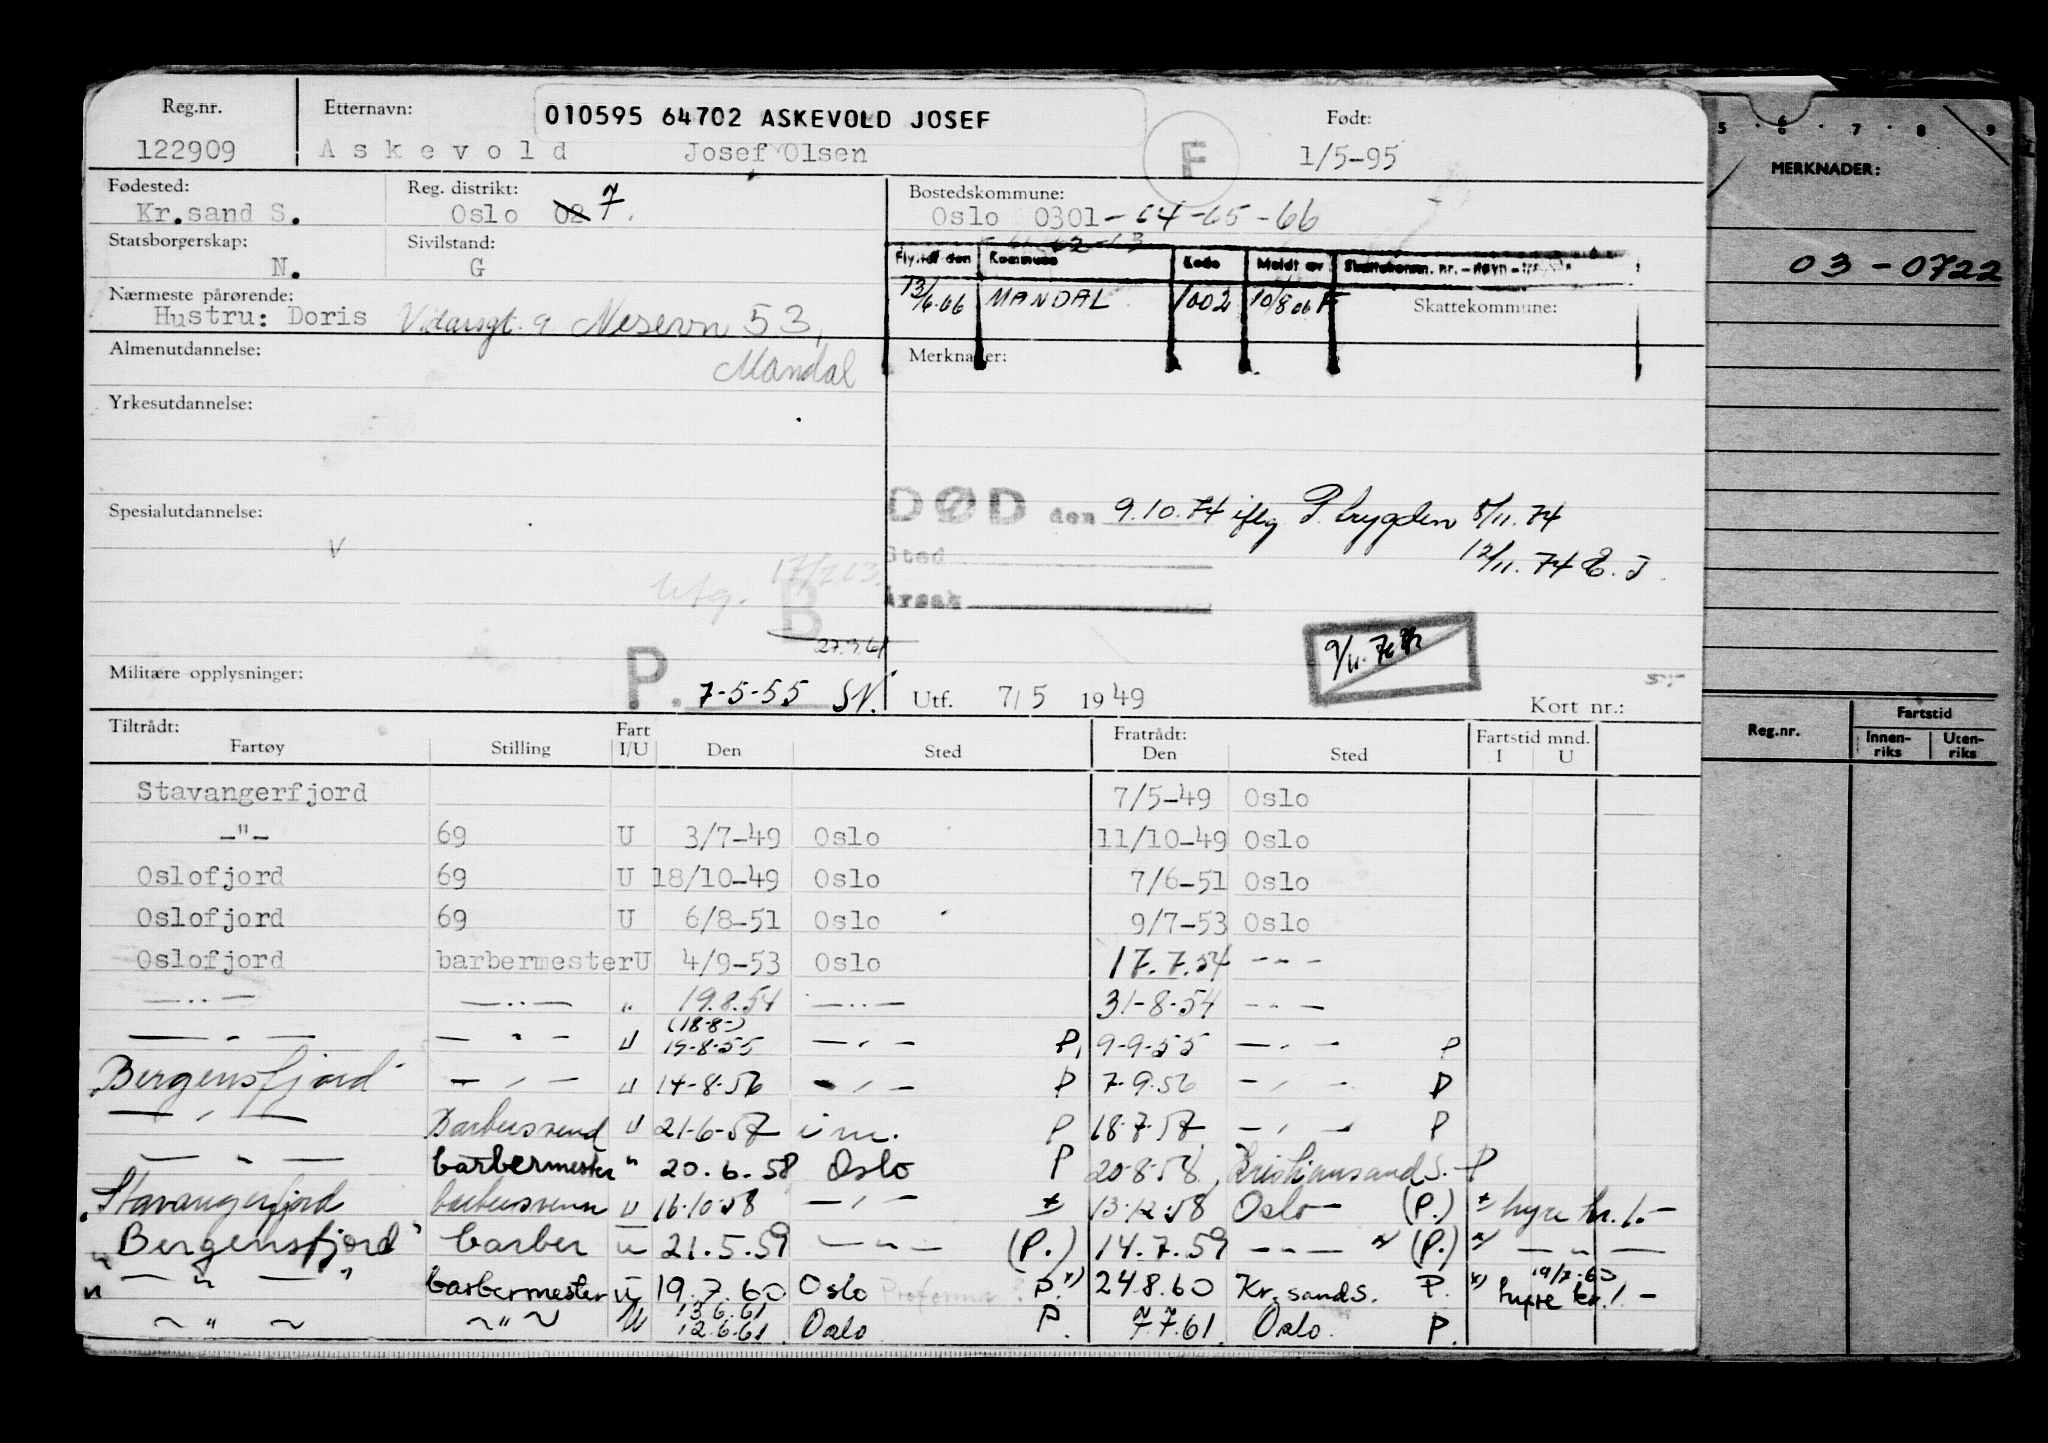 Reg.nr. Etternavn: 010595 64702 ASKEVOLD JOSEF Født:
122909 Askevold Josef Olsen F 1/5-95
Fødested: Reg. distrikt: Bostedskommune:
Kr.sand S. Oslo 02 7. Oslo 0301-64-65-66
Statsborgerskap: Sivilstand: 62-63
N. G
Flyttet den Kommune Kode Meldt av
13/6-66 MANDAL 1002 10/8 66 F
Nærmeste pårørende: Skattekommune:
Hustru: Doris Vidarsgt. 9 Neseven 53,
Mandal
Almenutdannelse: Merknader:
Yrkesutdannelse:
Spesialutdannelse:
V
DØD den 9.10.74 iflg P.trygden 8/11.74
12/11.74 E.J.
Sted
Årsak
Utg. 17/7 63.
B
27.9.61
9/11.76
Militære opplysninger: P. 7-5-55 SN. Utf. 7/5 1949 Kort nr.:
Tiltrådt: Fratrådt:
Fartøy Stilling Fart I/U Den Sted Den Sted Fartstid mnd. I U
Stavangerfjord 7/5-49 Oslo
-"- 69 U 3/7-49 Oslo 11/10-49 Oslo
Oslofjord 69 U 18/10-49 Oslo 7/6-51 Oslo
Oslofjord 69 U 6/8-51 Oslo 9/7-53 Oslo
Oslofjord barbermester U 4/9-53 Oslo 17.7.54 - - -
—..— —..— " 19.8.54 —..— 31-8-54 - - —
(18-8-)
— " — — " — U 19-8-55 — " — P. 9-9-55 — " — P
Bergensfjord — " — U 14-8-56 — " — P 7-9.56 — " — P
— " — Barbersvend U 21-6-57 i m. P 18-7-57 — " — P
— " — barbermester " 20.6.58 Oslo P 20-8-58 Kristiansand S. P
Stavangerfjord barbersvenn U 16-10-58 — " — ± 13-12-58 Oslo — (P.) ± hyre kr. 1.—
"Bergensfjord" barber U 21.5.59 — " — (P.) 14.7.59 — " — (P.) — " —
" — " — " barbermester U 19.7.60 Oslo Proforma P. x) 24.8.60 Kr.sand S. P. x) 19/7-60 hyre kr. 1.—
13.6.61
~ " ~ ~ " ~ U 12.6.61 Oslo P. 7.7.61. Oslo. P.
5 . 6 . 7 . 8 . 9
MERKNADER:
03-0722
Reg.nr. Fartstid
Innenriks Utenriks